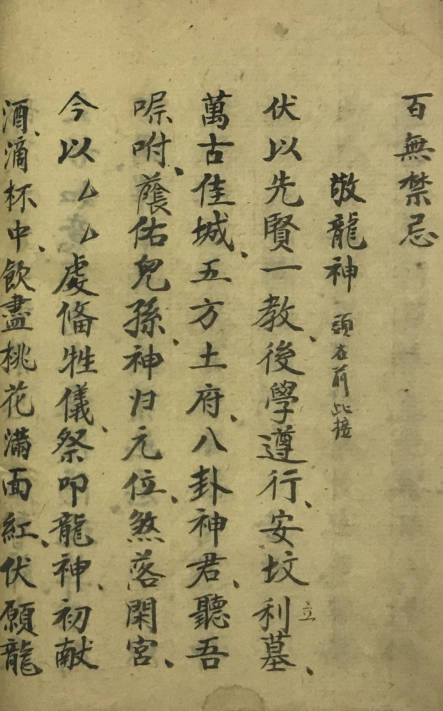 百無禁忌
敬龍神 頭在前此接
伏以先賢一教、後學遵行、安坟利墓、
立
萬古佳城、五方土府、八卦神君、聽吾
㗖咐、蔭佑兒孫、神归元位、煞落閑宮、
今以厶厶處俻牲儀、祭叩龍神、初献
酒、滴杯中、飲盡桃花滿面紅、伏願龍